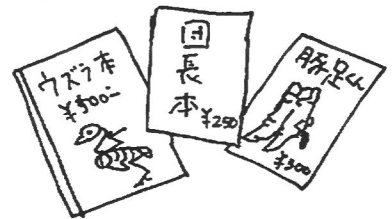 ウズラ本
¥500-
団長本
¥250
豚足くん
¥300